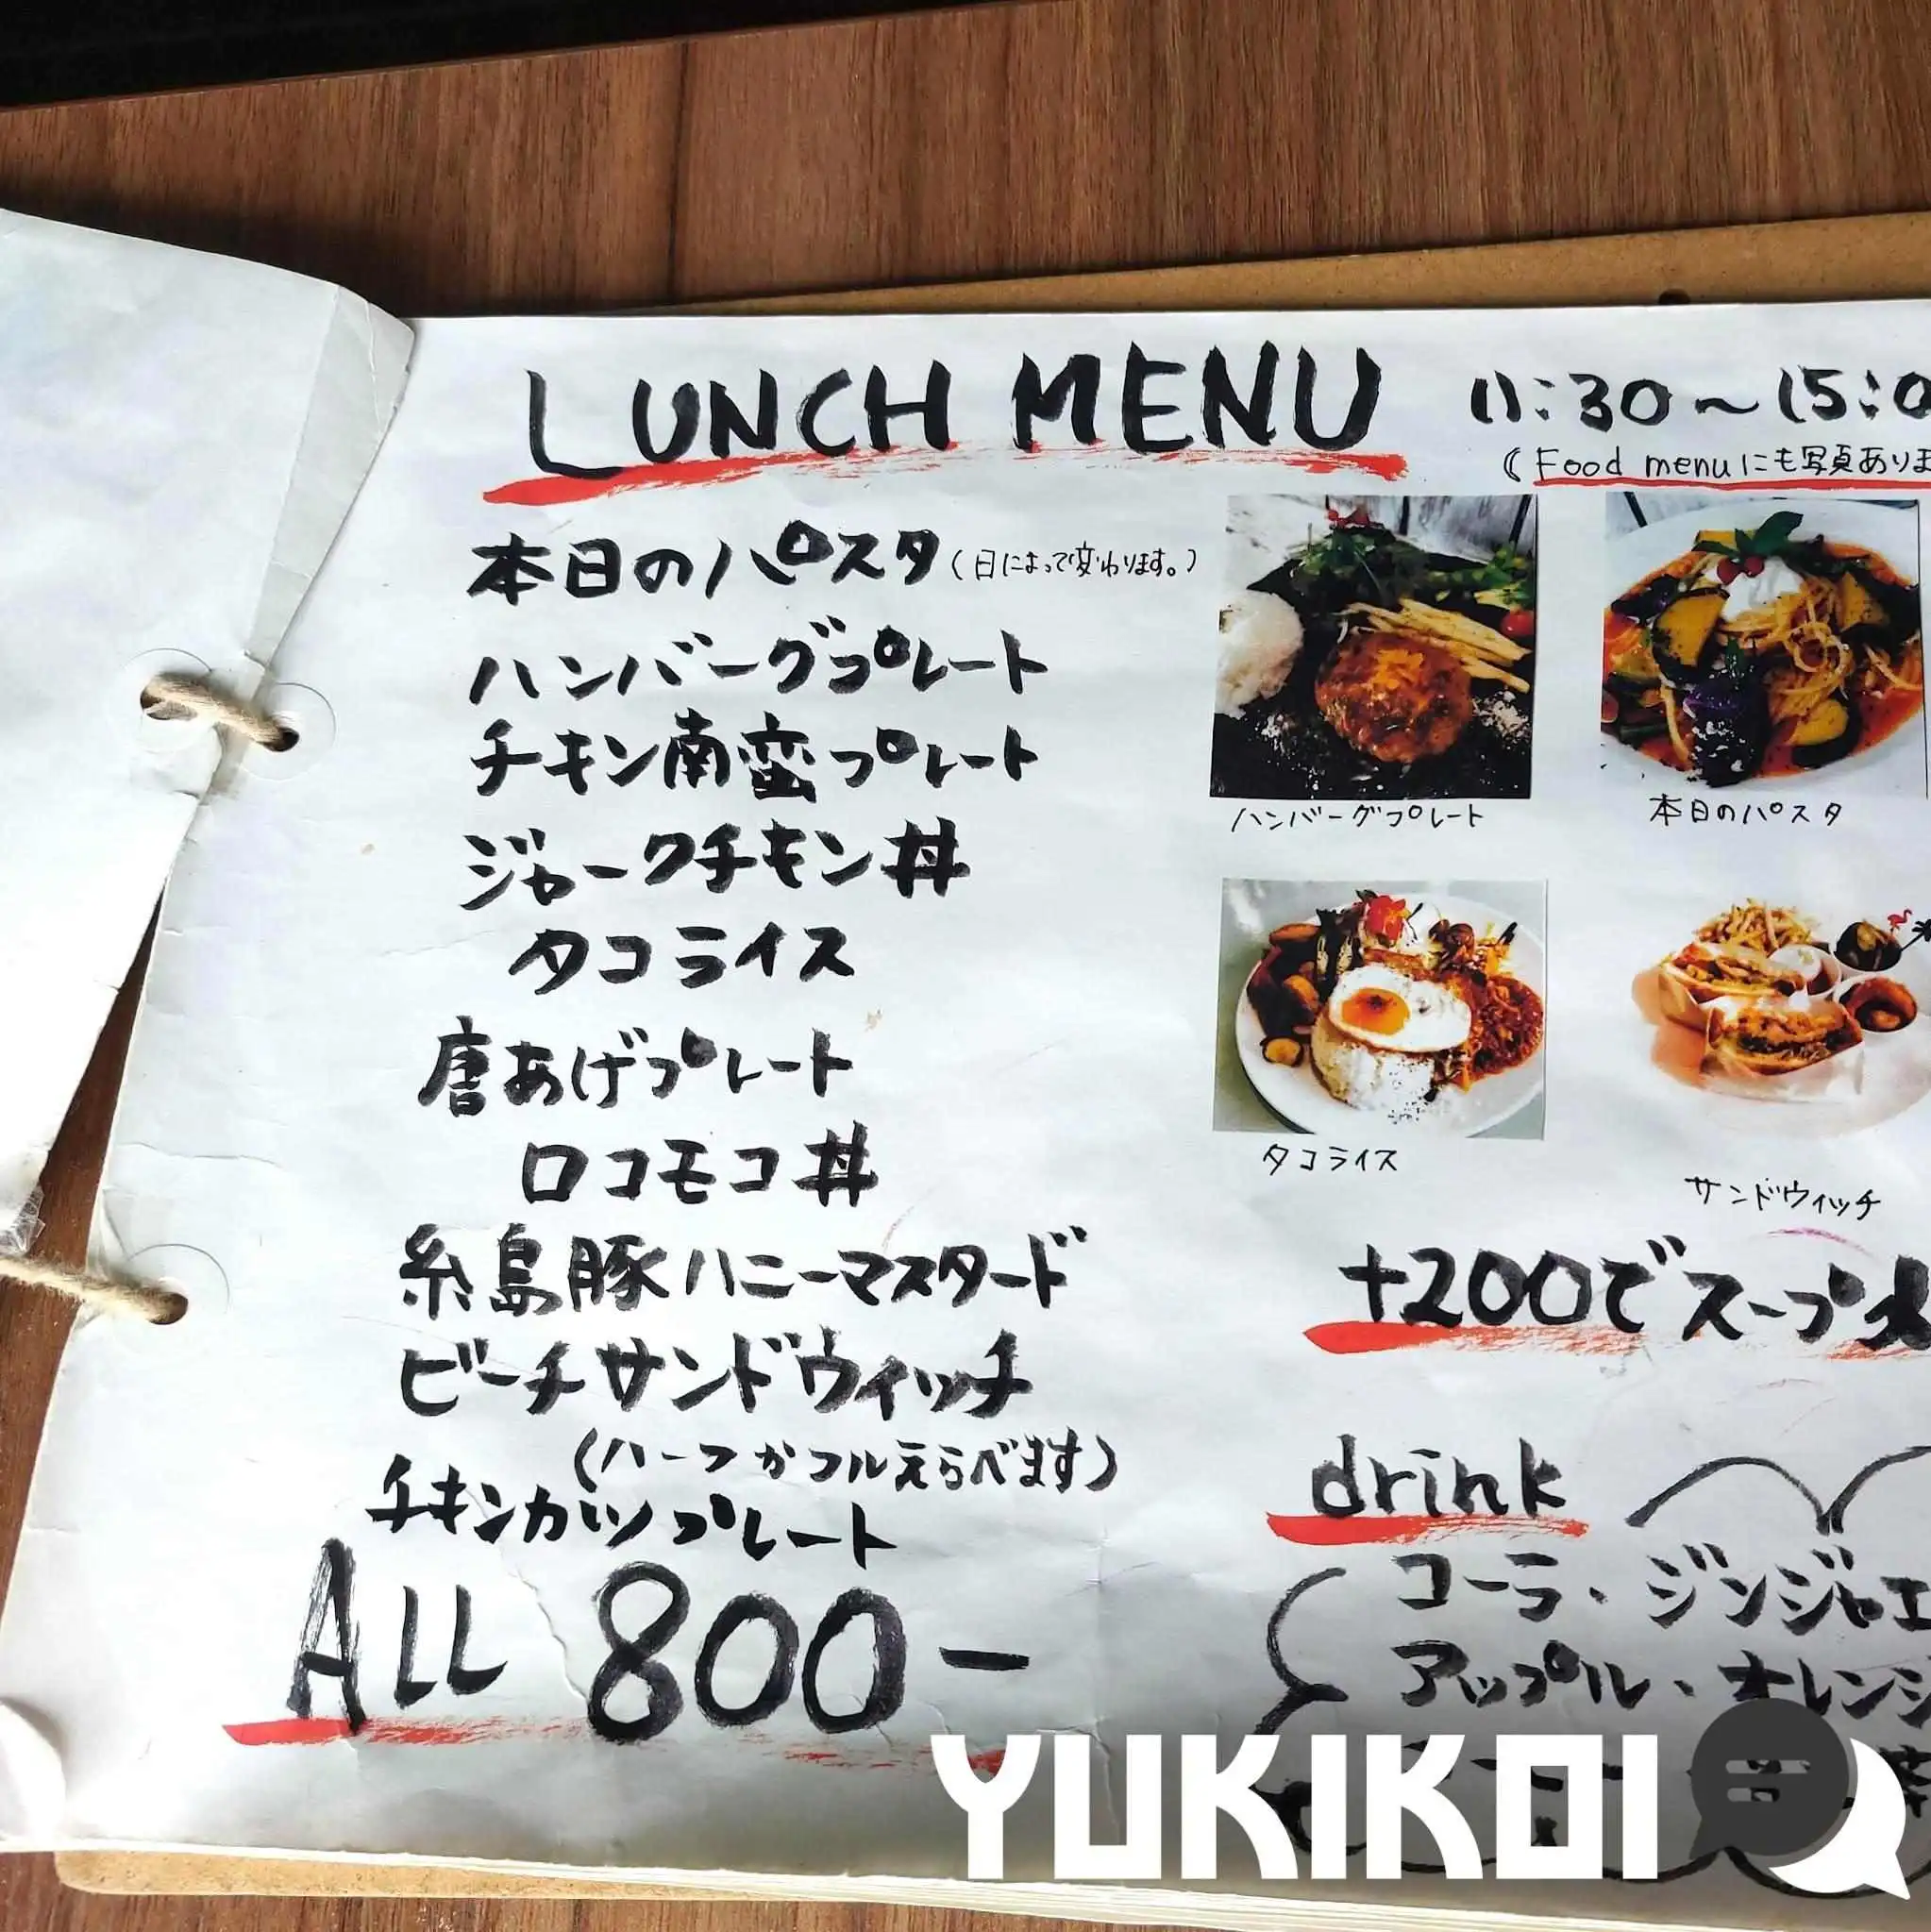 LUNCH MENU
11:30～15:0
(Food menuにも写真ありま
本日のパスタ(日によって変わります。)
ハンバーグプレート
チキン南蛮プレート
ジャークチキン丼
タコライス
唐あげプレート
ロコモコ丼
糸島豚ハニーマスタード
ビーチサンドウィッチ
(ハーフかフルえらべます)
チキンカツプレート
ALL 800-
ハンバーグプレート
本日のパスタ
タコライス
サンドウィッチ
+200でスープ
drink
コーラ・ジンジャエ
アップル・オレンジ
YUKIKOI